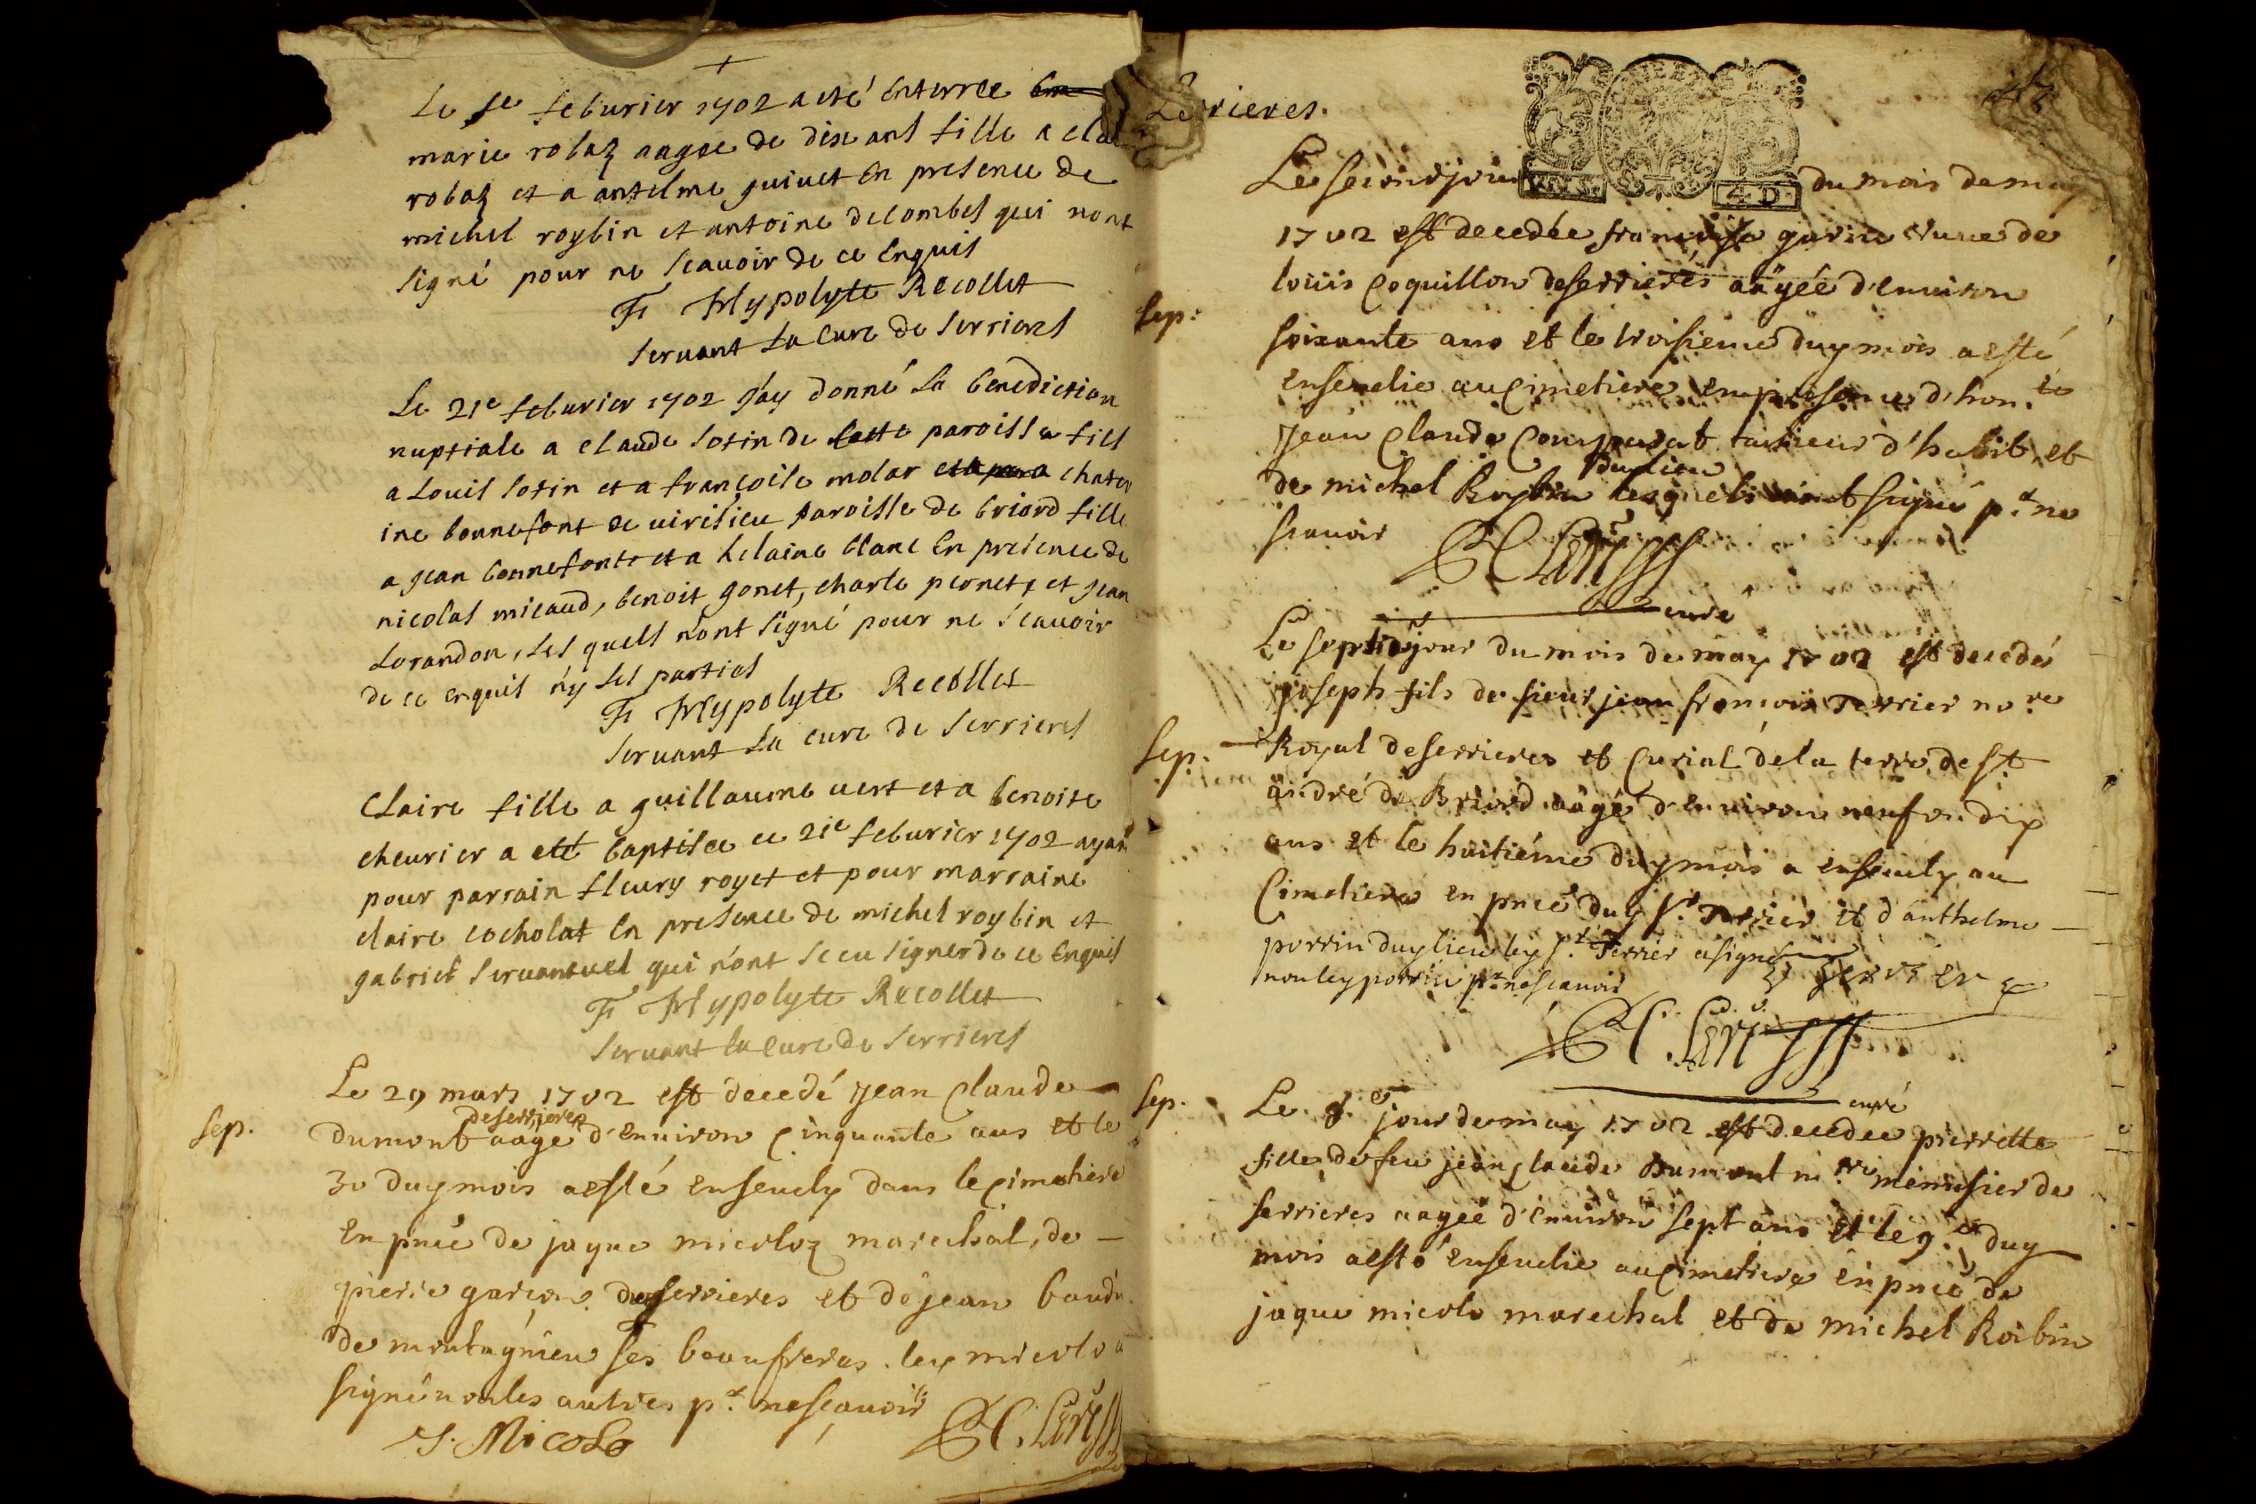 Le 1e feburier 1702 a eté enterree
marie robaz aagee de dix ans fille a clau
robaz et a antelme guiuet en presence de
michel roybin et antoine decombes qui nont
signé pour ne scauoir de ce enquis
F Hypolyte Recollet
seruant la cure de serrieres
Le 21e feburier 1702 j'ay donné la benediction
nuptiale a claude sotin de cette paroisse fils
a Louis sotin et a francoise molar chater
ine bonnefont de uirisieu paroisse de briord fille
a jean bonnefont et a helaine blanc en presence de
nicolas micaud, benoit gonet, charle pernet, et jean
Lorandon, les quels n'ont signé pour ne scauoir
de ce enquis n'y les parties
F Hypolyte Recollet
seruant la cure de serrieres
Claire fille a guillaume uert et a benoite
cheurier a eté baptisee ce 21e feburier 1702 ayan
pour parrain fleury royet et pour marraine
claire cocholat en presence de michel roybin et
gabriel qui n'ont sceu signer de ce enquis
F Hypolyte Recollet
seruant la cure de serrieres
Le 29 mars 1702 est decedé jean Claude
deserrieres
sep. dumont aagé d'enuiron cinquante ans et le
30 duy mois a esté enseuely dans le cimetiere
en pnce de jaque micoloz marechal, de
pierre garin deserrieres et de jean baudi
de montagnieu ses beaufreres. ley micolo a
signé non les autres pr. ne scauoir
J. Micolo
47
Serrieres.
Le second jour du mois de may
4. D.
1702 est decedée francoise garin veuue de
louis Coquillon deserrieres aagée d'enuiron
sep: soixante ans et le troisieme duy mois a esté
enseuelie au cimetiere en presence d'hon. te
jean Claude Comparat tailleur d'habit et
duy lieu
de michel Roybin lesquels n'ont signé pr. ne
scauoir
curé
Le septie jour du mois de may 1702 est decedé
joseph fils de sieur jean francois Terrier no.re
sep. Royal deserrieres et Curial de la terre de St
andré de Briord aagé d'enuiron neuf ou dix
ans et le huitiéme duy mois a enseuely au
Cimetiere en pnce duy Sr. Terrier et d'anthelme
perrin duy lieu ley Sr. Terrier a signé
non ley perrin pr ne scauoir
Terrier
curé
sep. Le 8.e jour de may 1702 est decedee pierrette
fille de feu jean claude Dumont m.re menusier de
serrieres aagée d'enuiron sept ans et le 9.e duy
mois a esté enseuelie au cimetiere en pnce de
jaque micolo marechal et de michel Roibin